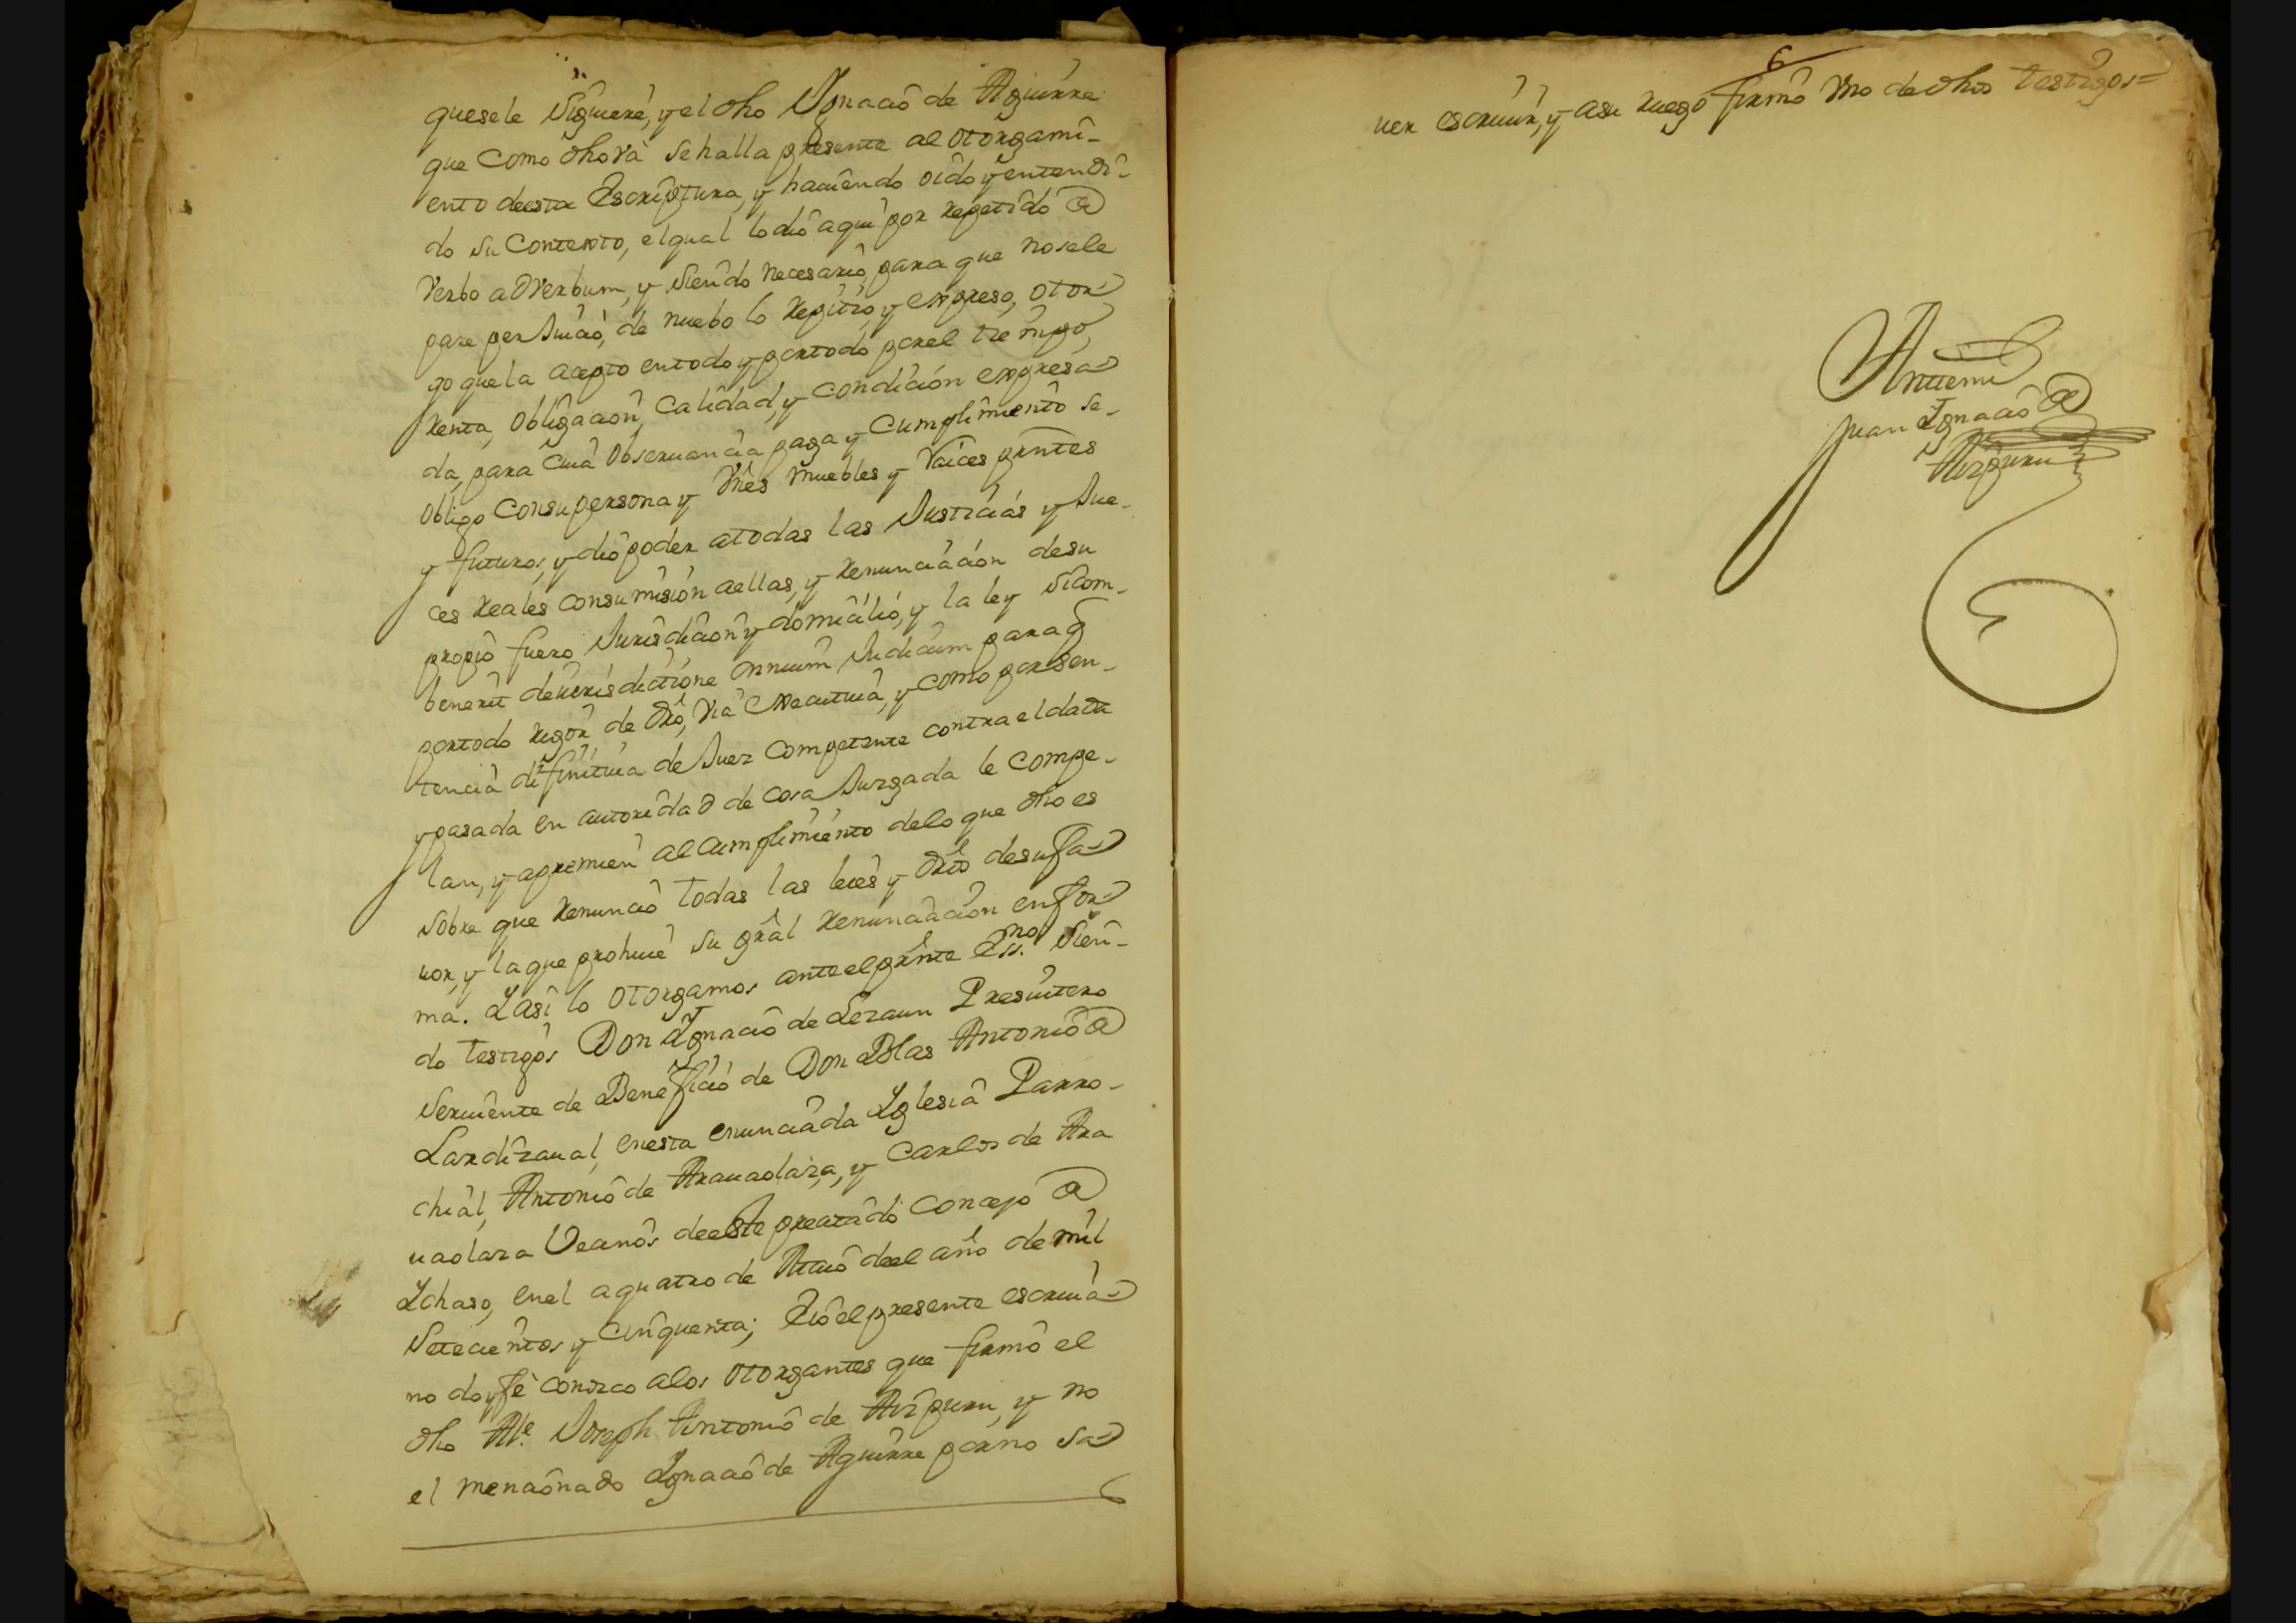 quesele Siguiere, y el dho Ygnacio de Aguirre
que como dho va se halla presente al otorgami-
ento deesta Escriptura, y haviendo oido y entendi-
do su Contexto, elqual lo dio aqui por repetido de
Verbo ad Verbum, y siendo necesario, para que nosele
pare perJuicio, de nuebo lo repitio, y expreso, otor-
go quela acepto entodo y portodo por el tiempo,
Renta, obligacion, Calidad, y condicion expresa-
da, para cuia observancia paga y Cumplimiento se-
obligo consupersona y vnes muebles y raices prntes
y futuros, y dio poder atodas las Justicias y Jue-
ces Reales consumision aellas, y renunciacion desu
propio fuero Jurisdicion y domicilio, y la ley sicom-
benerit deiurisdictione omnium Judicum para q
portodo rigor de dro, via executiva, y como por sen-
tencia difinitiva de Juez competente contra el dada
y pasada en autoridad de cosa Juzgada le compe-
lan, y apremien al cumplimiento delo que dho es
sobre que renuncio todas las leies y dros desufa-
vor, y laque prohive su gral renunciacion enfor-
ma. Yasi lo otorgamos anteel prnte Essno. sien-
do testigos Don Ygnacio de Lezaun Presvitero
Serviente de Beneficio de Don Blas Antonio de
Lardizaval, enesta enunciada Yglesia Parro-
chial, Antonio de Aravaolaza, y Carlos de Ara
vaolaza Vecinos deeste precitado Concejo de
Ychaso, enel a quatro de Maio deel año de mil
Setecientos y Cinquenta; E io el presente escriva-
no doy fè conozco alos otorgantes que firmo el
dho Ale. Joseph Antonio de Aizpuru, y no
el mencionado Ygnacio de Aguirre por no sa-
6
ver escrivir, y asu ruego firmo vno de dhos testigos=
Antemi
Juan Ignacio de
Aizpuru